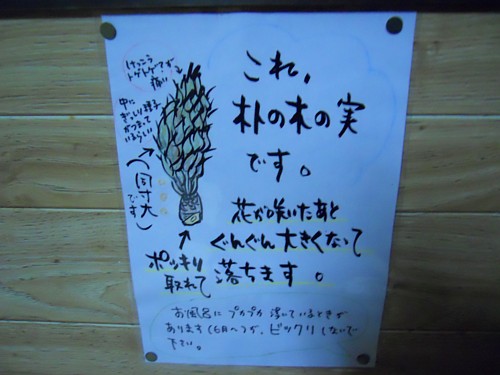 これ、
朴の木の実
です。
花が咲いたあと
ぐんぐん大きくなって
落ちます。
けっこう
トゲトゲです
痛い
中に
ぎっしり種子
がつまって
いるらしい
(同寸大
です)
ポッキリ
取れて
お風呂にプカプカ浮いているときが
あります(6月〜)が、ビックリしないで
下さい。